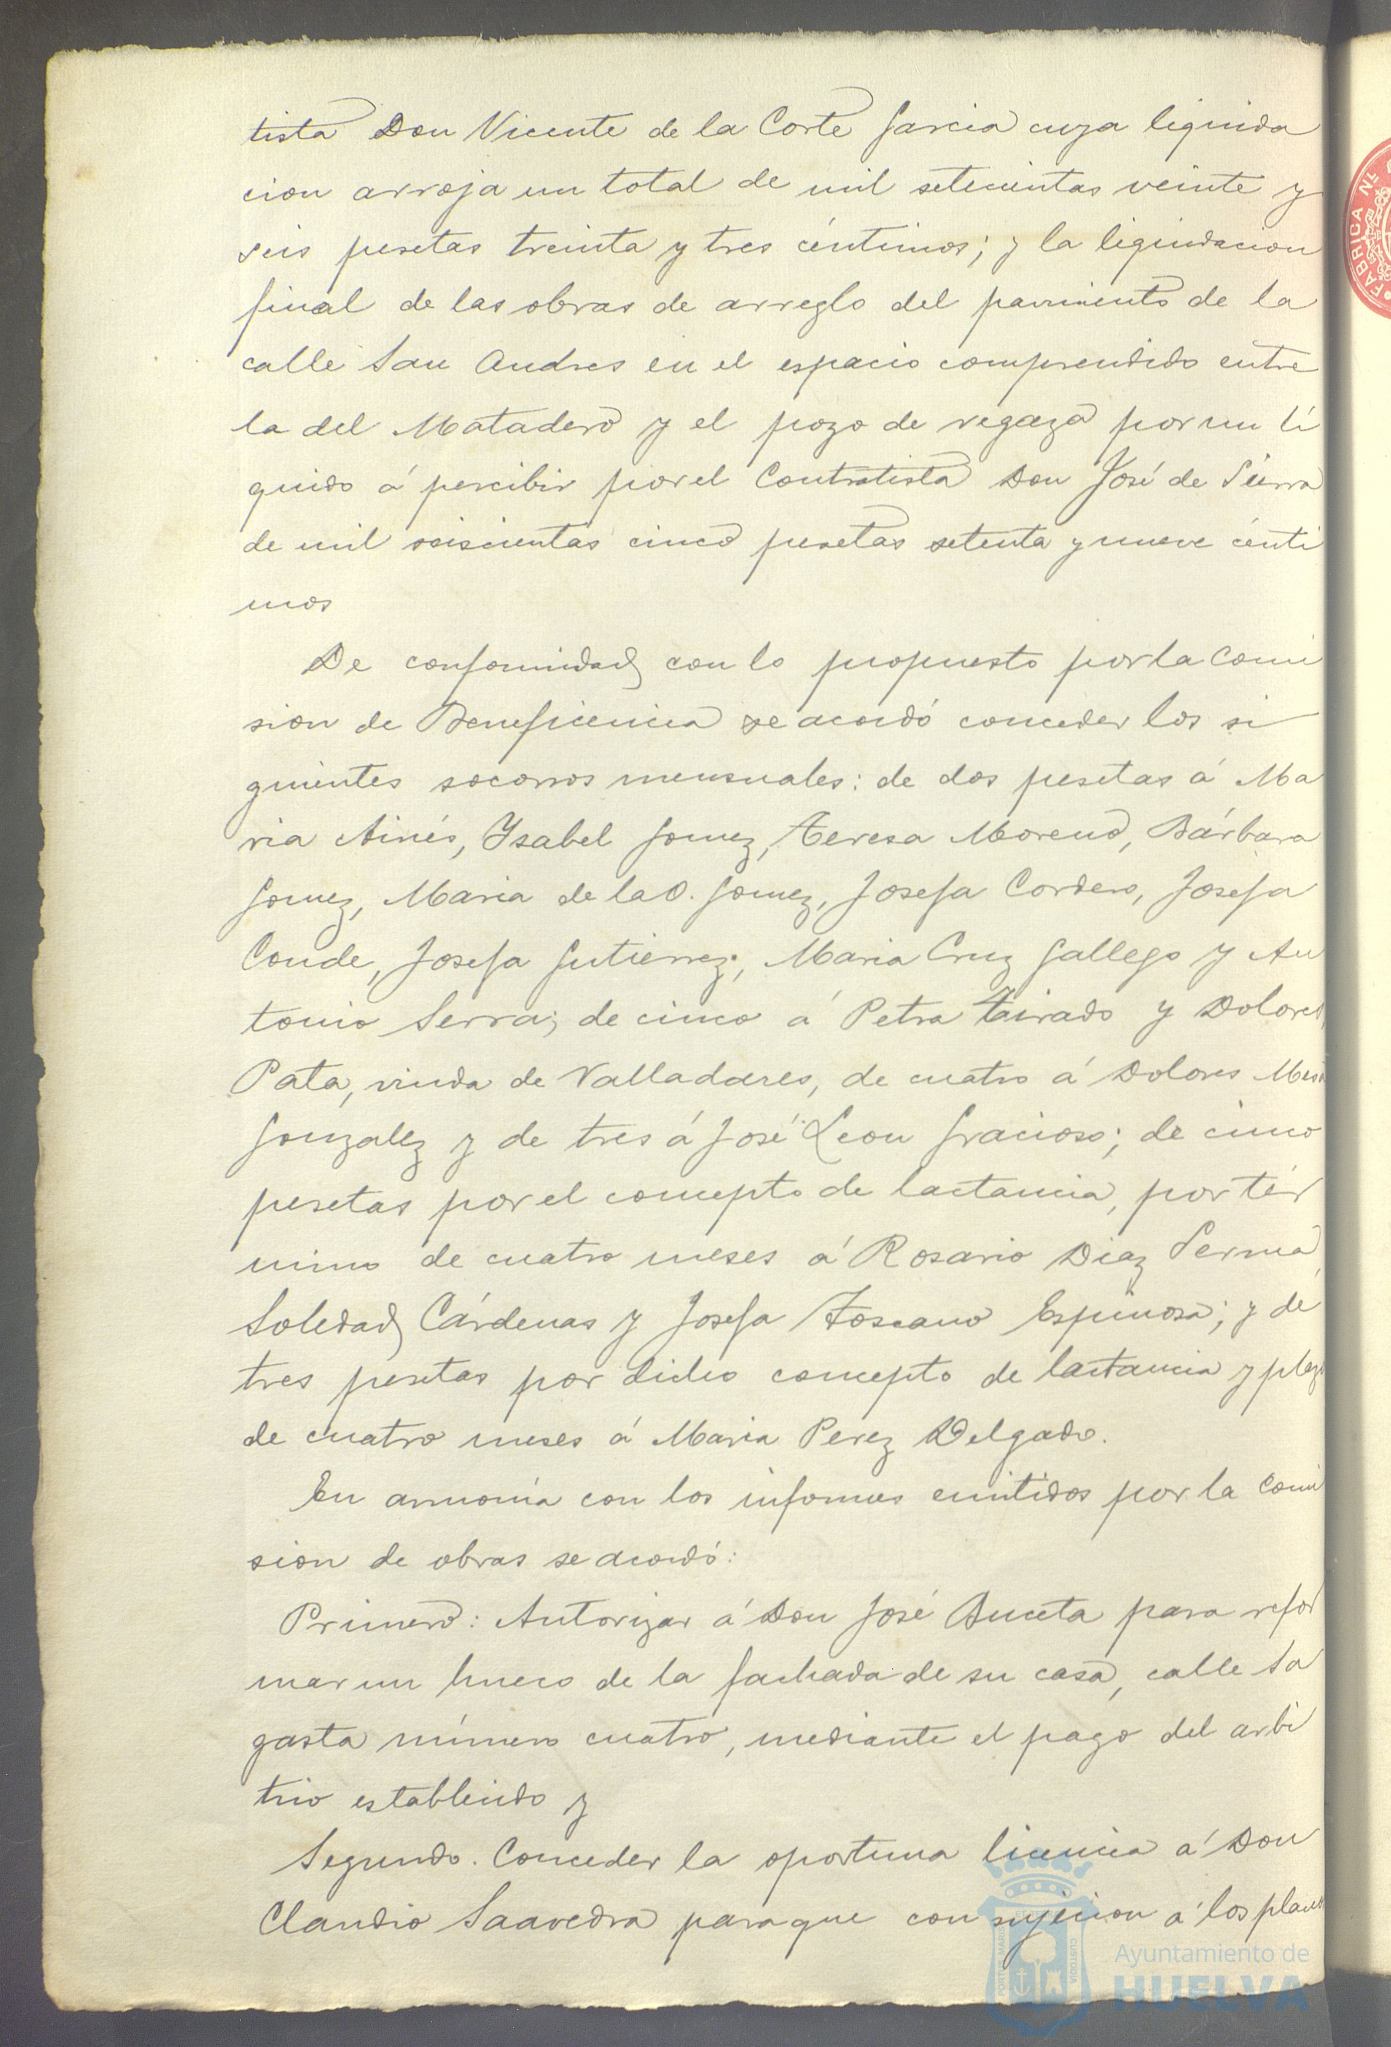 tista Don Vicente de la Corte Garcia cuya liquida
cion arroja un total de mil setecientas veinte y
seis pesetas treinta y tres céntimos; y la liquidacion
final de las obras de arreglo del pavimento de la
calle San Andres en el espacio comprendido entre
la del Matadero y el pozo de regaza por un lí
quido á percibir por el Contratista Don José de Sierra
de mil seiscientas cinco pesetas setenta y nueve cénti
mos
De conformidad con lo propuesto por la Comi
sion de Beneficencia se acordó conceder los si
guientes socorros mensuales: de dos pesetas á Ma
ria Ainés, Ysabel Gomez, Teresa Moreno, Bárbara
Gomez, Maria de la O. Gomez, Josefa Cordero, Josefa
Conde, Josefa Gutierrez, Maria Cruz Gallego y An
tonio Serra; de cinco á Petra Tirado y Dolores
Pata, viuda de Valladares, de cuatro á Dolores
Gonzalez y de tres á José Leon Gracioso; de cinco
pesetas por el concepto de lactancia, por tér
mino de cuatro meses á Rosario Diaz Serma,
Soledad Cárdenas y Josefa Toscano Espinosa; y de
tres pesetas por dicho concepto de lactancia y plazo
de cuatro meses á Maria Perez Delgado.
En armonía con los informes emitidos por la Comi
sion de obras se acordó:
Primero: Autorizar á Don José Buceta para refor
mar un hueco de la fachada de su casa, calle Sa
gasta número cuatro, mediante el pago del arbi
trio establecido y
Segundo. Conceder la oportuna licencia á Don
Claudio Saavedra para que con sujecion á los planos
FABRICA
Ayuntamiento de
HUELVA